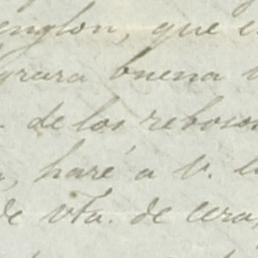 englon, que e
grara buena
. de los rebosos
, haré a V. l
de vta. de cera,